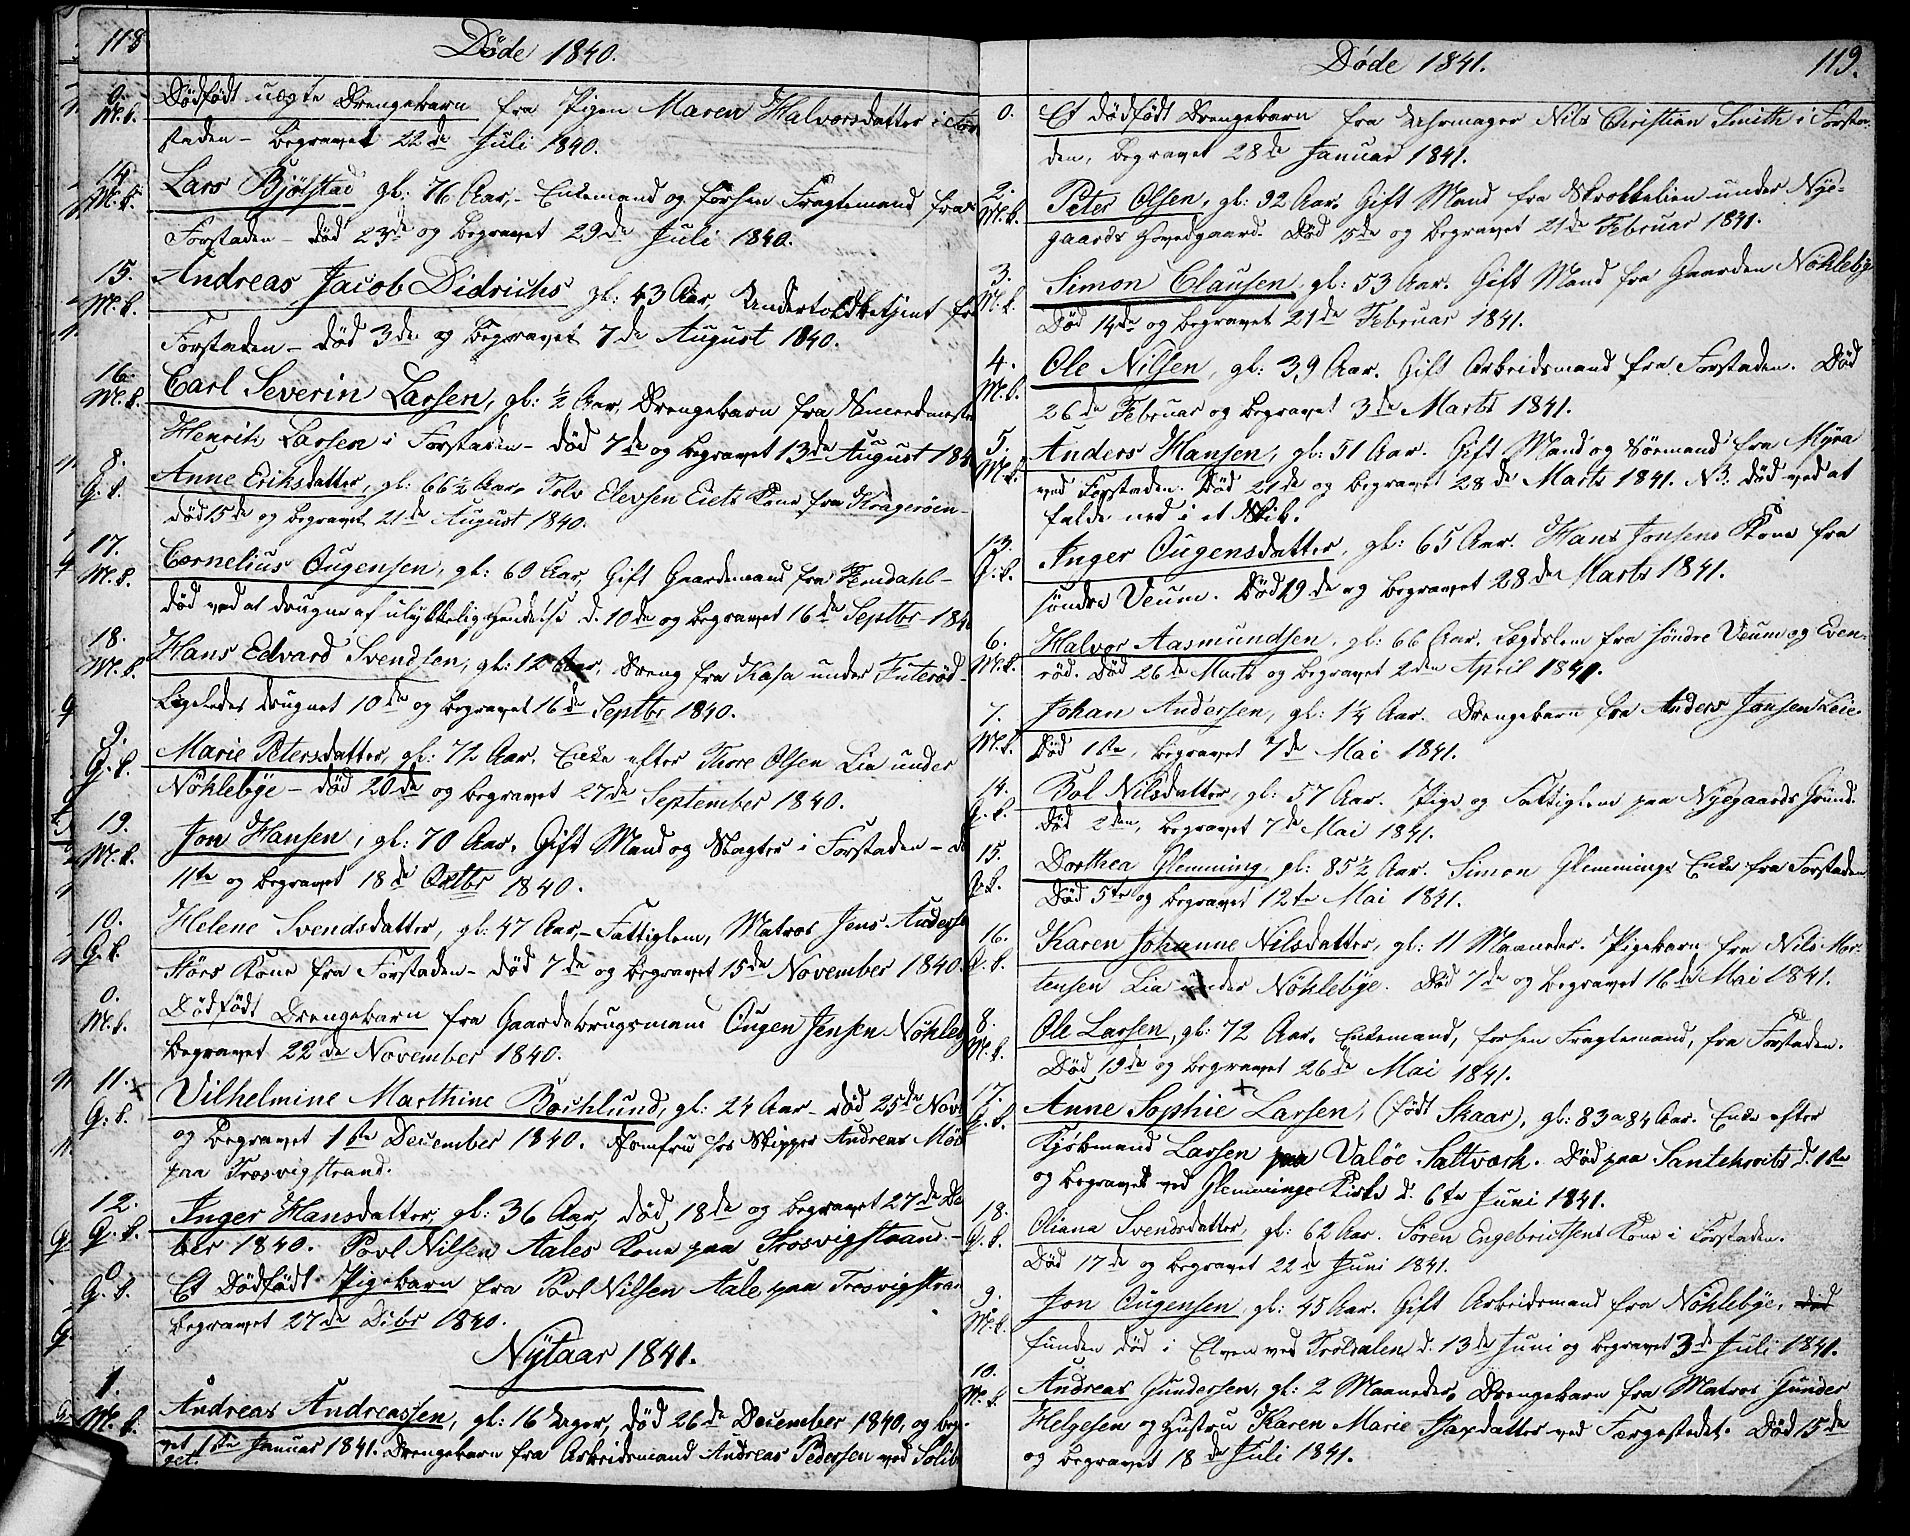 118
Døde 1840.
0. Dødfødt uægte Drengebarn fra Pigen Maren Halvorsdatter i For
M.k. staden – begravet 22de Juli 1840.
14. Lars Bjølstad gl: 76 Aar, – Enkemand og forhen Fragtemand fra
M.k. Forstaden – død 23de og begravet 29de Juli 1840.
15. Andreas Jacob Didrichs gl: 43 Aar, Undertoldbetjent fr
M.k. Forstaden – død 3de og begravet 7de August 1840.
16. Carl Severin Larsen, gl: ½ Aar, Drengebarn fra
M.k. Henrik Larsen i Forstaden – død 7de og begravet 13de August 184
8. Anne Eriksdatter, gl: 66½ Aar. Tolv Elevsen Eiets Kone fra Kragerøen –
Q.k. død 15de og begravet 21de August 1840.
17. Cornelius Ougensen, gl: 69 Aar, Gift Gaardmand fra Femdahl –
M.k. død ved at drugne af ulykkelig Hendelse d. 10de og begravet 16de Septbr 184
18. Hans Edvard Svendsen, gl: 12 Aar, Dreng fra Kasa under Futerød –
M.k. Ligeledes drugnet 10de og begravet 16de Septbr 1840.
9. Marie Petersdatter, gl: 72 Aar. Enke efter Thore Olsen Lia under
Q.k. Nøklebye – død 20de og begravet 27de September 1840.
19. Jon Hansen, gl: 70 Aar, Gift Mand og Slagter i Forstaden – d
M.k. 11te og begravet 18de Octbr 1840.
10. Helene Svendsdatter, gl: 47 Aar, – Fattiglem, Matros Jens Anders
Q.k. Kone fra Forstaden – død 7de og begravet 15de November 1840.
0. Dødfødt Drengebarn fra Gaardebrugsmand Ougen Jensen Nøkleb
M.k. begravet 22de November 1840.
11. + Vilhelmine Marthine Bochlund, gl: 24 Aar – død 25de Nov
Q.k. og begravet 1ste December 1840. Jomfru hos Skipper Andreas
paa Trosvigstrand.
12. Inger Hansdatter, gl: 36 Aar, død 18de og begravet 27de De
Q.k. ber 1840. Povl Nilsen Aales Kone paa Trosvigstrand –
0 Et Dødfødt Pigebarn fra Povl Nilsen Aale paa Trosvigstran
Q.k. begravet 27de Dcbr 1840.
Nytaar 1841.
1. Andreas Andreassen, gl: 16 Uger, død 26de December 1840, og beg.
M.k. vet 1ste Januar 1841. Drengebarn fra Arbeidsmand Andreas Pedersen ved
Døde 1841.
119.
0. Et dødfødt Drengebarn fra Uhrmager Nils Christian Smith i Forsta-
den, begravet 28de Januar 1841.
2. Peter Olsen, gl: 92 Aar. Gift Mand fra Skrokkelien under Nye-
M.k. gaards Hovedgaard. Død 15de og begravet 21de Februar 1841.
3. Simon Clausen, gl: 53 Aar. Gift Mand fra Gaarden Nøkleby
M.k. Død 14de og begravet 21de Februar 1841.
4. Ole Nilsen, gl: 39 Aar. Gift Arbeidsmand fra Forstaden. Død
M.k. 26de Februar og begravet 3de Marts 1841.
5. Anders Hansen, gl: 51 Aar. Gift Mand og Sømand fra Myra
M.k. ved Forstaden. Død 21de og begravet 28de Marts 1841. NB. død ved at
falde ned i et Skib.
13. Inger Ougensdatter, gl: 65 Aar. Hans Jonsens Kone fra
Q.k. søndre Veum. Død 19de og begravet 28de Marts 1841.
6. Halvor Aasmundsen, gl: 66 Aar. Lægdslem fra søndre Veum og Even-
M.k. rød. Død 26de Marts og begravet 2den April 1841.
7. Johan Andersen, gl: 1¼ Aar. Drengebarn fra Anders Jansen Leie.
M.k. Død 1ste, begravet 7de Mai 1841.
14. Bol Nilsdatter, gl: 57 Aar. Pige og Fattiglem paa Nyegaards Grund.
Q.k. Død 2den, begravet 7de Mai 1841.
15. Dorthea Glemming, gl: 85½ Aar. Simon Glemmings Enke fra Forstaden
Q.k. Død 5te og begravet 12te Mai 1841.
16. Karen Johanne Nilsdatter, gl: 11 Maaneder. Pigebarn fra Nils Mor-
Q.k. tensen Lia under Nøklebye. Død 7de og begravet 16de Mai 1841.
8. Ole Larsen, gl: 72 Aar. Enkemand, forhen Fragtemand, fra Forstaden.
M.k. Død 19de og begravet 26de Mai 1841.
17. Anne Sophie + Larsen, (født Skaar), gl: 83 a 84 Aar. Enke efter
Q.k. Kjøbmand Larsen paa Valøe Saltværk. Død paa d. 1ste
og begravet ved Glemminge Kirke d. 6te Juni 1841.
18. Oliana Svendsdatter, gl: 62 Aar. Søren Engebrictsens Kone i Forstaden.
Q.k. Død 17de og begravet 22de Juni 1841.
9. Jon Ougensen, gl: 45 Aar. Gift Arbeidsmand fra Nøklebye, død
M.k. funden død i Elven ved Troldalen d. 13de Juni og begravet 3de Juli 1841.
10. Andreas Gundersen, gl: 2 Maaneder. Drengebarn fra Matros Gunder
M.k. Helgesen og Hustru Karen Marie Isaxdatter ved Færgestedet. Død 15de
og begravet 18de Juli 1841.